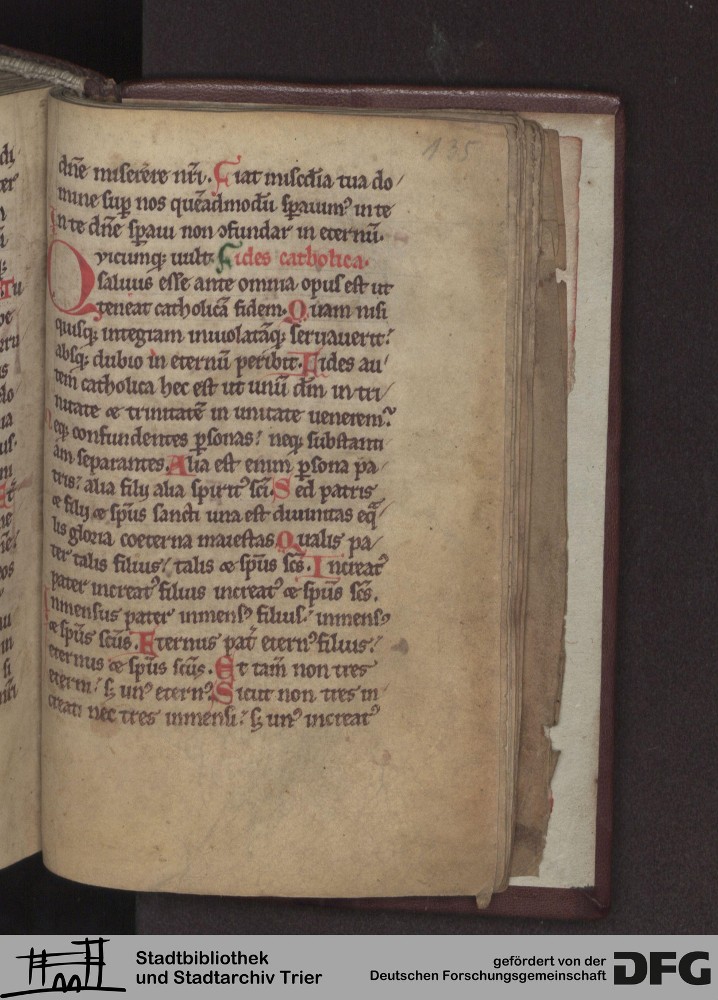 135
dn̄e miserere nr̄i. Fiat misc̄dia tua do/
mine sup̱ nos quēadmodū sp̄auimꝰ in te
In te dn̄e sp̄aui non ɔfundar in eternū.
Qvicumq; uult. Fides catholica.
saluus esse ante omnia opus est ut
teneat catholicā fidem. Quam nisi
quisq; integram inuiolatāq; seruauerit:
absq; dubio in eternū peribit. Fides au/
tem catholica hec est ut unū dm̄ in tri/
nitate & trinitatē in unitate ueneremꝰ
Neq; confundentes p̱sonas: neq; substanti/
am separantes. Alia est enim p̱sona pa/
tris: alia filij alia spiritꝰ sc̄i. Sed patris
& filij & sp̄us sancti una est diuinitas eq̄/
lis gloria coeterna maiestas. Qualis pa/
ter talis filius: talis & sp̄us sc̄s. Increatꝰ
pater increatꝰ filius increatꝰ & sp̄us sc̄s.
Inmensus pater inmensꝰ filius: inmensꝰ
& sp̄us sc̄us. Eternus pat̄ eternꝰ filius:
eternus & sp̄us sc̄us. Et tam̄ non tres
eterni: s; unꝰ eternꝰ. Sicut non tres in
creati nec tres inmensi: s; unꝰ increatꝰ
Stadtbibliothek
und Stadtarchiv Trier
gefördert von der
Deutschen Forschungsgemeinschaft
DFG